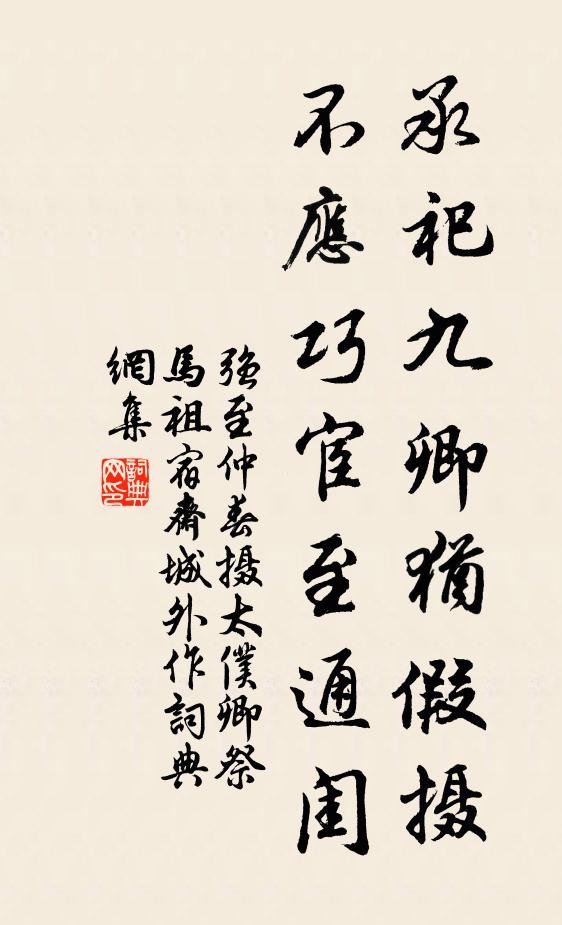 承祀九卿猶假摄
不應巧宦至通闺
强至仲春摄太僕卿祭
馬祖宿齋城外作詞典
網集
詞典
网印